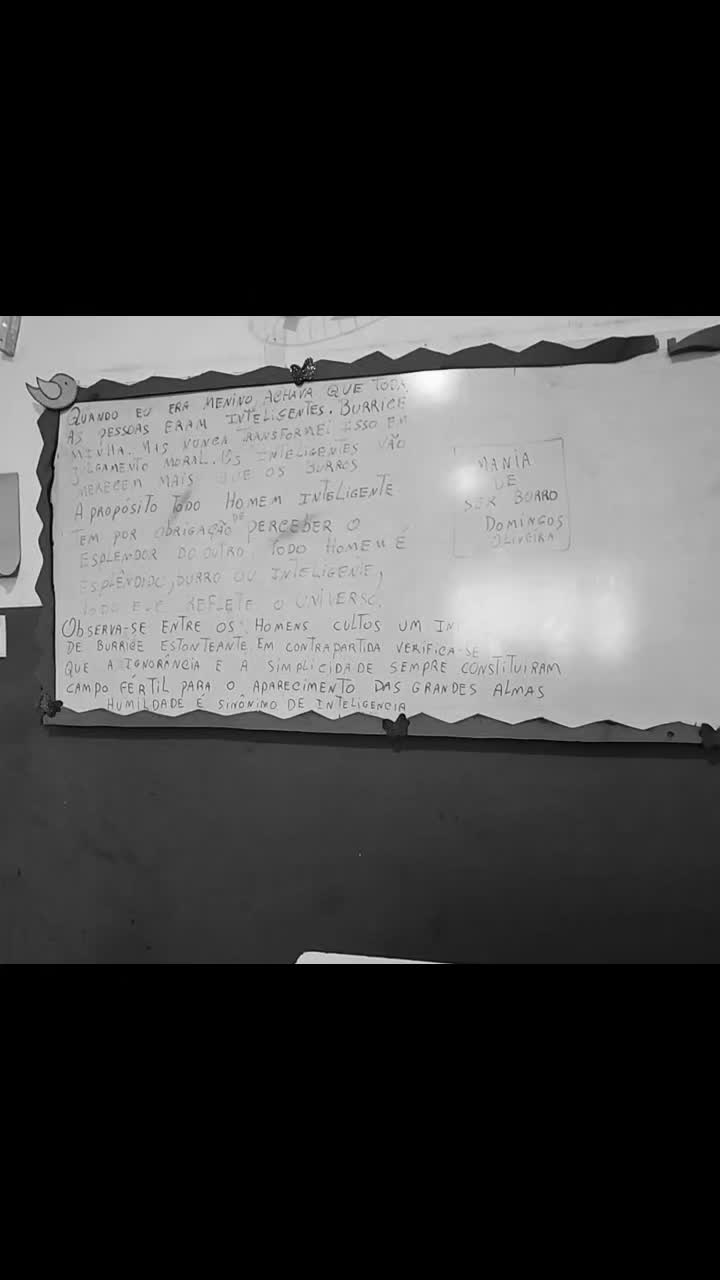 QUANDO EU ERA MENINO, ACHAVA QUE TODA
AS PESSOAS ERAM INTELIGENTES. BURRICE
MINHA. MAS NUNCA TRANSFORMEI ISSO EM
JULGAMENTO MORAL. OS INTELIGENTES NÃO
MERECEM MAIS QUE OS BURROS
A PROPÓSITO TODO HOMEM INTELIGENTE
TEM POR OBRIGAÇÃO DE PERCEBER O
ESPLENDOR DO OUTRO. TODO HOMEM É
ESPLÊNDIDO, BURRO OU INTELIGENTE,
TODO ELE REFLETE O UNIVERSO.
OBSERVA-SE ENTRE OS HOMENS CULTOS UM
DE BURRICE ESTONTEANTE. EM CONTRAPARTIDA VERIFICA-SE
QUE A IGNORÂNCIA E A SIMPLICIDADE SEMPRE CONSTITUIRAM
CAMPO FÉRTIL PARA O APARECIMENTO DAS GRANDES ALMAS
HUMILDADE É SINÔNIMO DE INTELIGENCIA
MANIA
DE
SER BURRO
DOMINGOS
OLIVEIRA